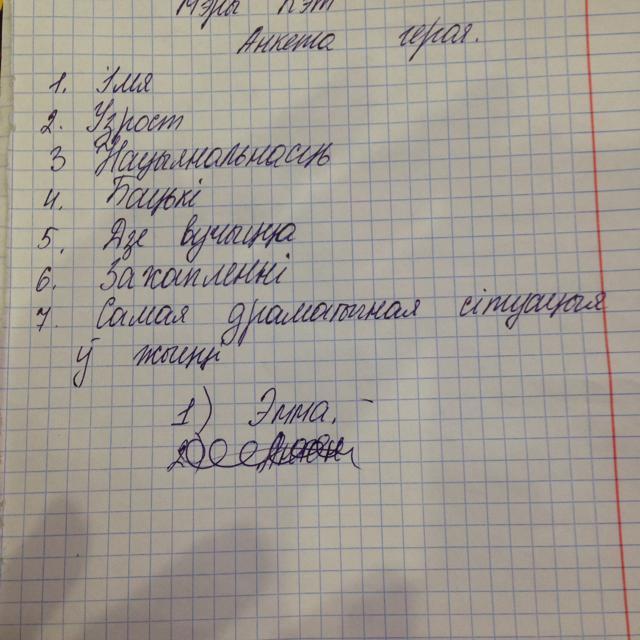 Мэры Пэт
Анкета героя.
1. Імя
2. Узрост
3 Нацыянальнасць
4. Бацькі
5. Дзе вучыцца
6. Захапленні
7. Самая драматычная сітуацыя
ў жыцці
1) Эмма.
2)